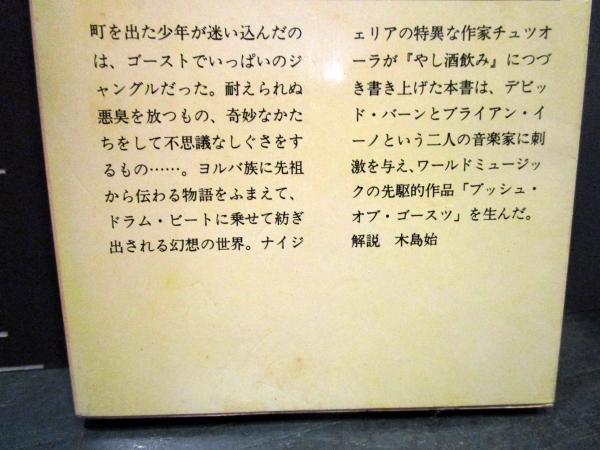 町を出た少年が迷い込んだの
は、ゴーストでいっぱいのジ
ャングルだった。耐えられぬ
悪臭を放つもの、奇妙なかた
ちをして不思議なしぐさをす
るもの……。ヨルバ族に先祖
から伝わる物語をふまえて、
ドラム・ビートに乗せて紡ぎ
出される幻想の世界。ナイジ
ェリアの特異な作家チュツオ
ーラが『やし酒飲み』につづ
き書き上げた本書は、デビッ
ド・バーンとブライアン・イ
ーノという二人の音楽家に刺
激を与え、ワールドミュージッ
クの先駆的作品「ブッシュ・
オブ・ゴースツ」を生んだ。
解説　木島始